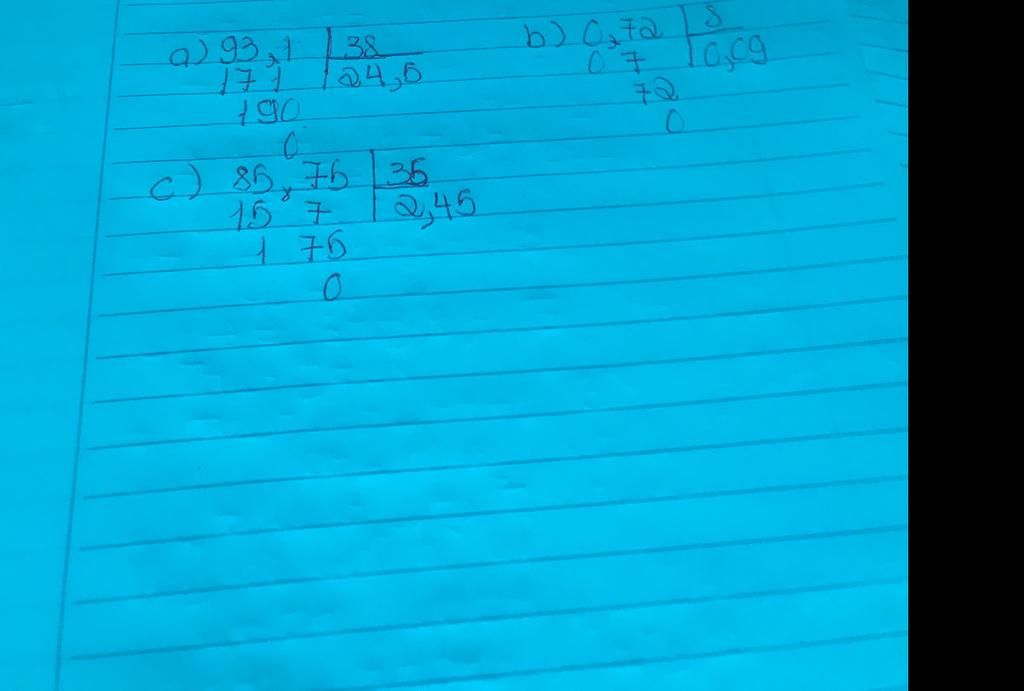 a) 93,1 | 38
171 | 24,5
190
0
b) 0,72 | 8
0 7 | 0,09
72
0
c) 85,75 | 35
15 7 | 2,45
1 75
0